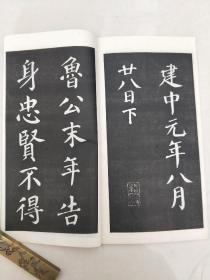 建中元年八月
廿八日下
魯公末年告
身忠賢不得